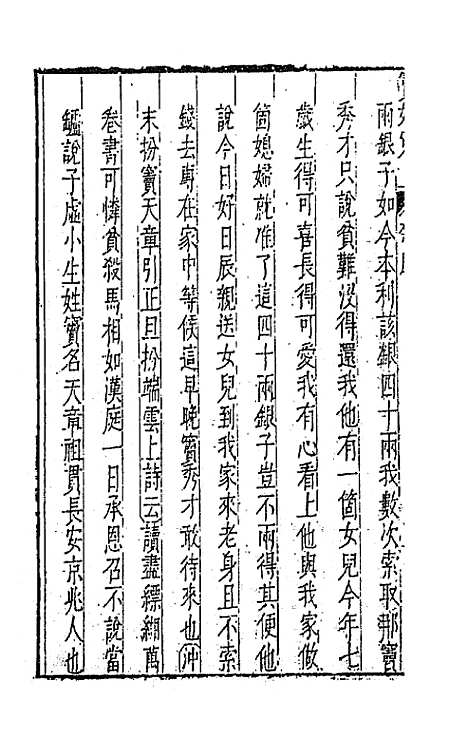 兩銀子如今本利該銀四十兩我數次索取那竇
秀才只說貧難沒得還我他有一箇女兒今年七
歲生得可喜長得可愛我有心看上他與我家做
箇媳婦就准了這四十兩銀子豈不兩得其便他
說今日好日辰親送女兒到我家來老身且不索
錢去專在家中等候這早晚竇秀才敢待來也沖
末扮竇天章引正旦扮端雲上詩云讀盡縹緗萬
卷書可憐貧殺馬相如漢庭一日承恩召不說當
鑪說子虛小生姓竇名天章祖貫長安京兆人也